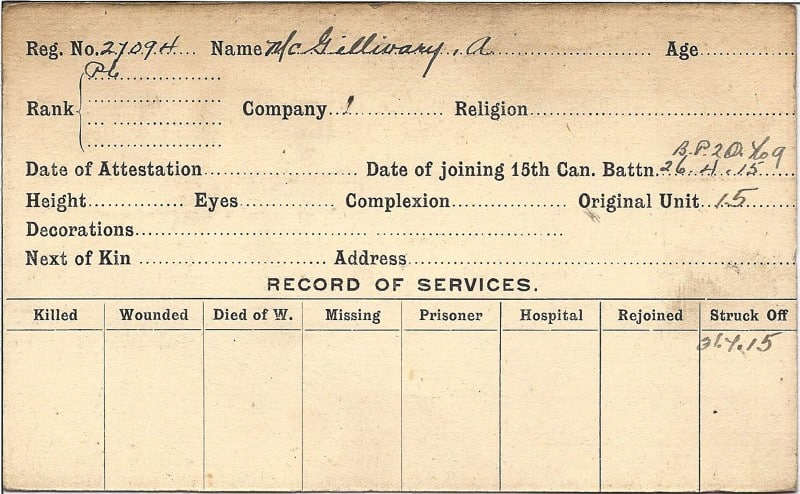 Reg. No. 27094 Name McGillivary, A Age
Rank Pte
Company 1 Religion
Date of Attestation Date of joining 15th Can. Battn. 26.4.15
Height Eyes Complexion Original Unit 15
Decorations
Next of Kin Address
RECORD OF SERVICES.
Killed Wounded Died of W. Missing Prisoner Hospital Rejoined Struck Off